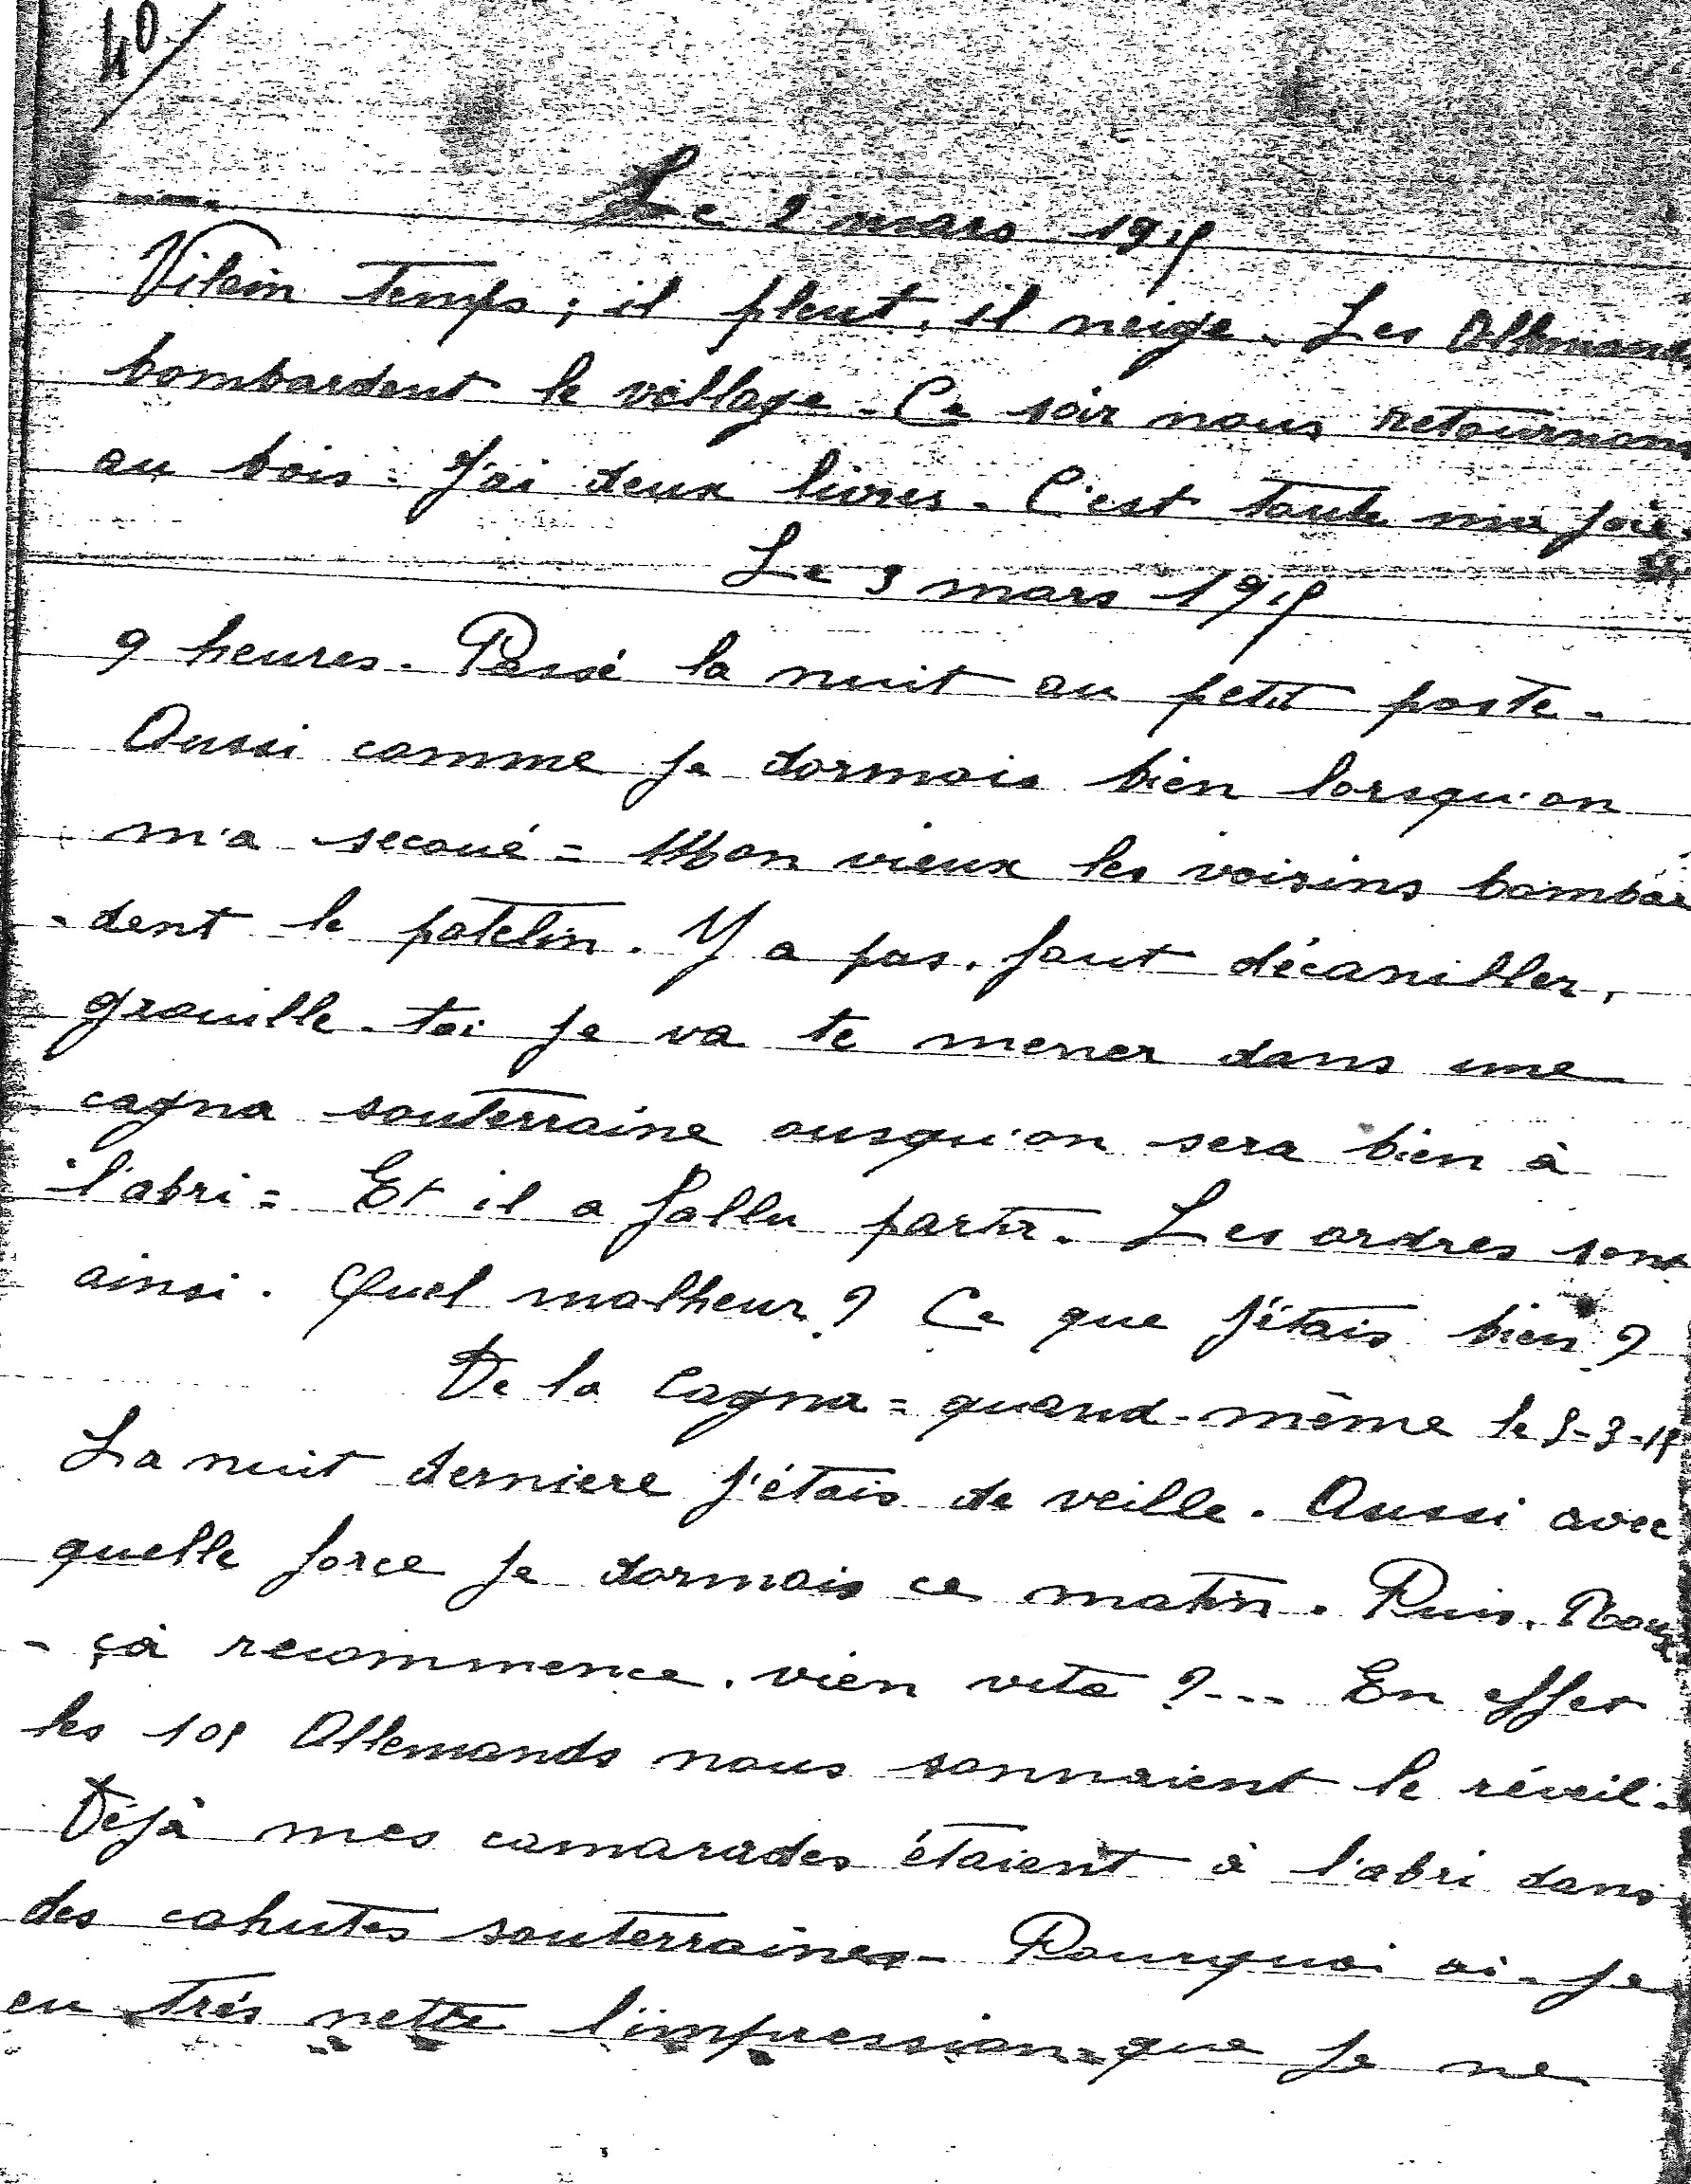 40/
Le 2 mars 1915
Vilain temps ; il pleut, il neige. Les Allemands
bombardent le village. Ce soir nous retournons
au bois. J'ai deux livres. C'est toute ma joie.
Le 3 mars 1915
9 heures. Passé la nuit au petit poste.
Aussi comme je dormais bien lorsqu'on
m'a secoué = Mon vieux les voisins bombar
-dent le patelin. Y a pas, faut décaniller,
grouille-toi je va te mener dans une
cagna souterraine ousqu'on sera bien à
l'abri = Et il a fallu partir. Les ordres sont
ainsi. Quel malheur ? Ce que j'étais bien ?
De la Cagna = quand-même le 5-3-15
La nuit derniere j'étais de veille. Aussi avec
quelle force je dormais ce matin. Puis,
- çà recommence, vien vite ?... En effet
les 105 Allemands nous sonnaient le réveil.
Déjà mes camarades étaient à l'abri dans
des cahutes souterraines. Pourquoi ai-je
eu très nette l'impression que je ne